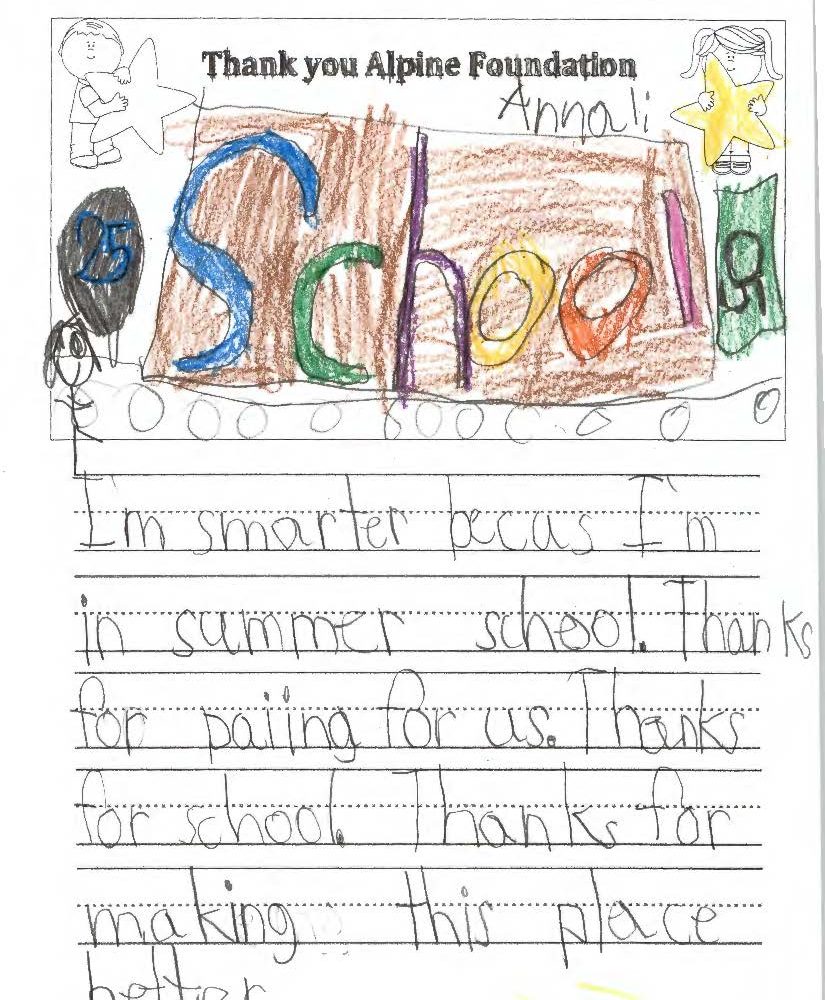 Thank you Alpine Foundation
Annali
25
School
I'm smarter becus I'm
in summer school. Thanks
for paiing for us. Thanks
for school. Thanks for
making this place
better